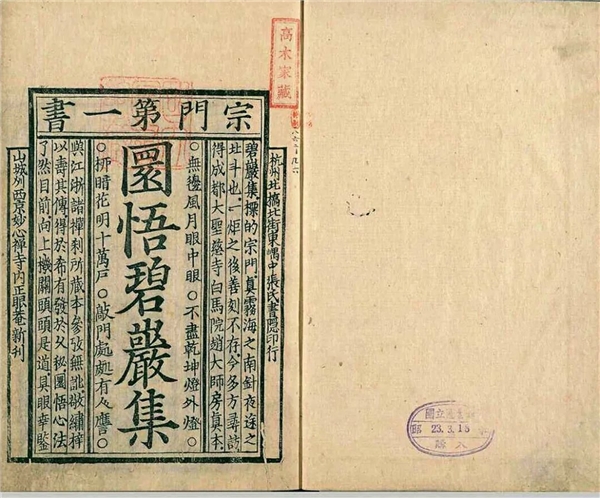 高木家藏
宗門第一書
杭州北橋北街東嵎中張氏書隱印行
碧巖集標的宗門真霧海之南針夜途之
北斗也一炬之後善刻不存今多方尋訪
得成都大聖慈寺白馬院趙大師房真本
○無邊風月眼中眼○不盡乾坤燈外燈○
圜悟碧巖集
○柳暗花明十萬戶○敲門處處有人譍○
與江浙諸禪刹所藏本參攷無訛敬繡梓
以壽其傳得於希有發於久秘圜悟心法
了然目前向上機關頭頭是道具眼幸鑒
山城州西京妙心禪寺內正眼菴新刊
國立
23.3.15
購入